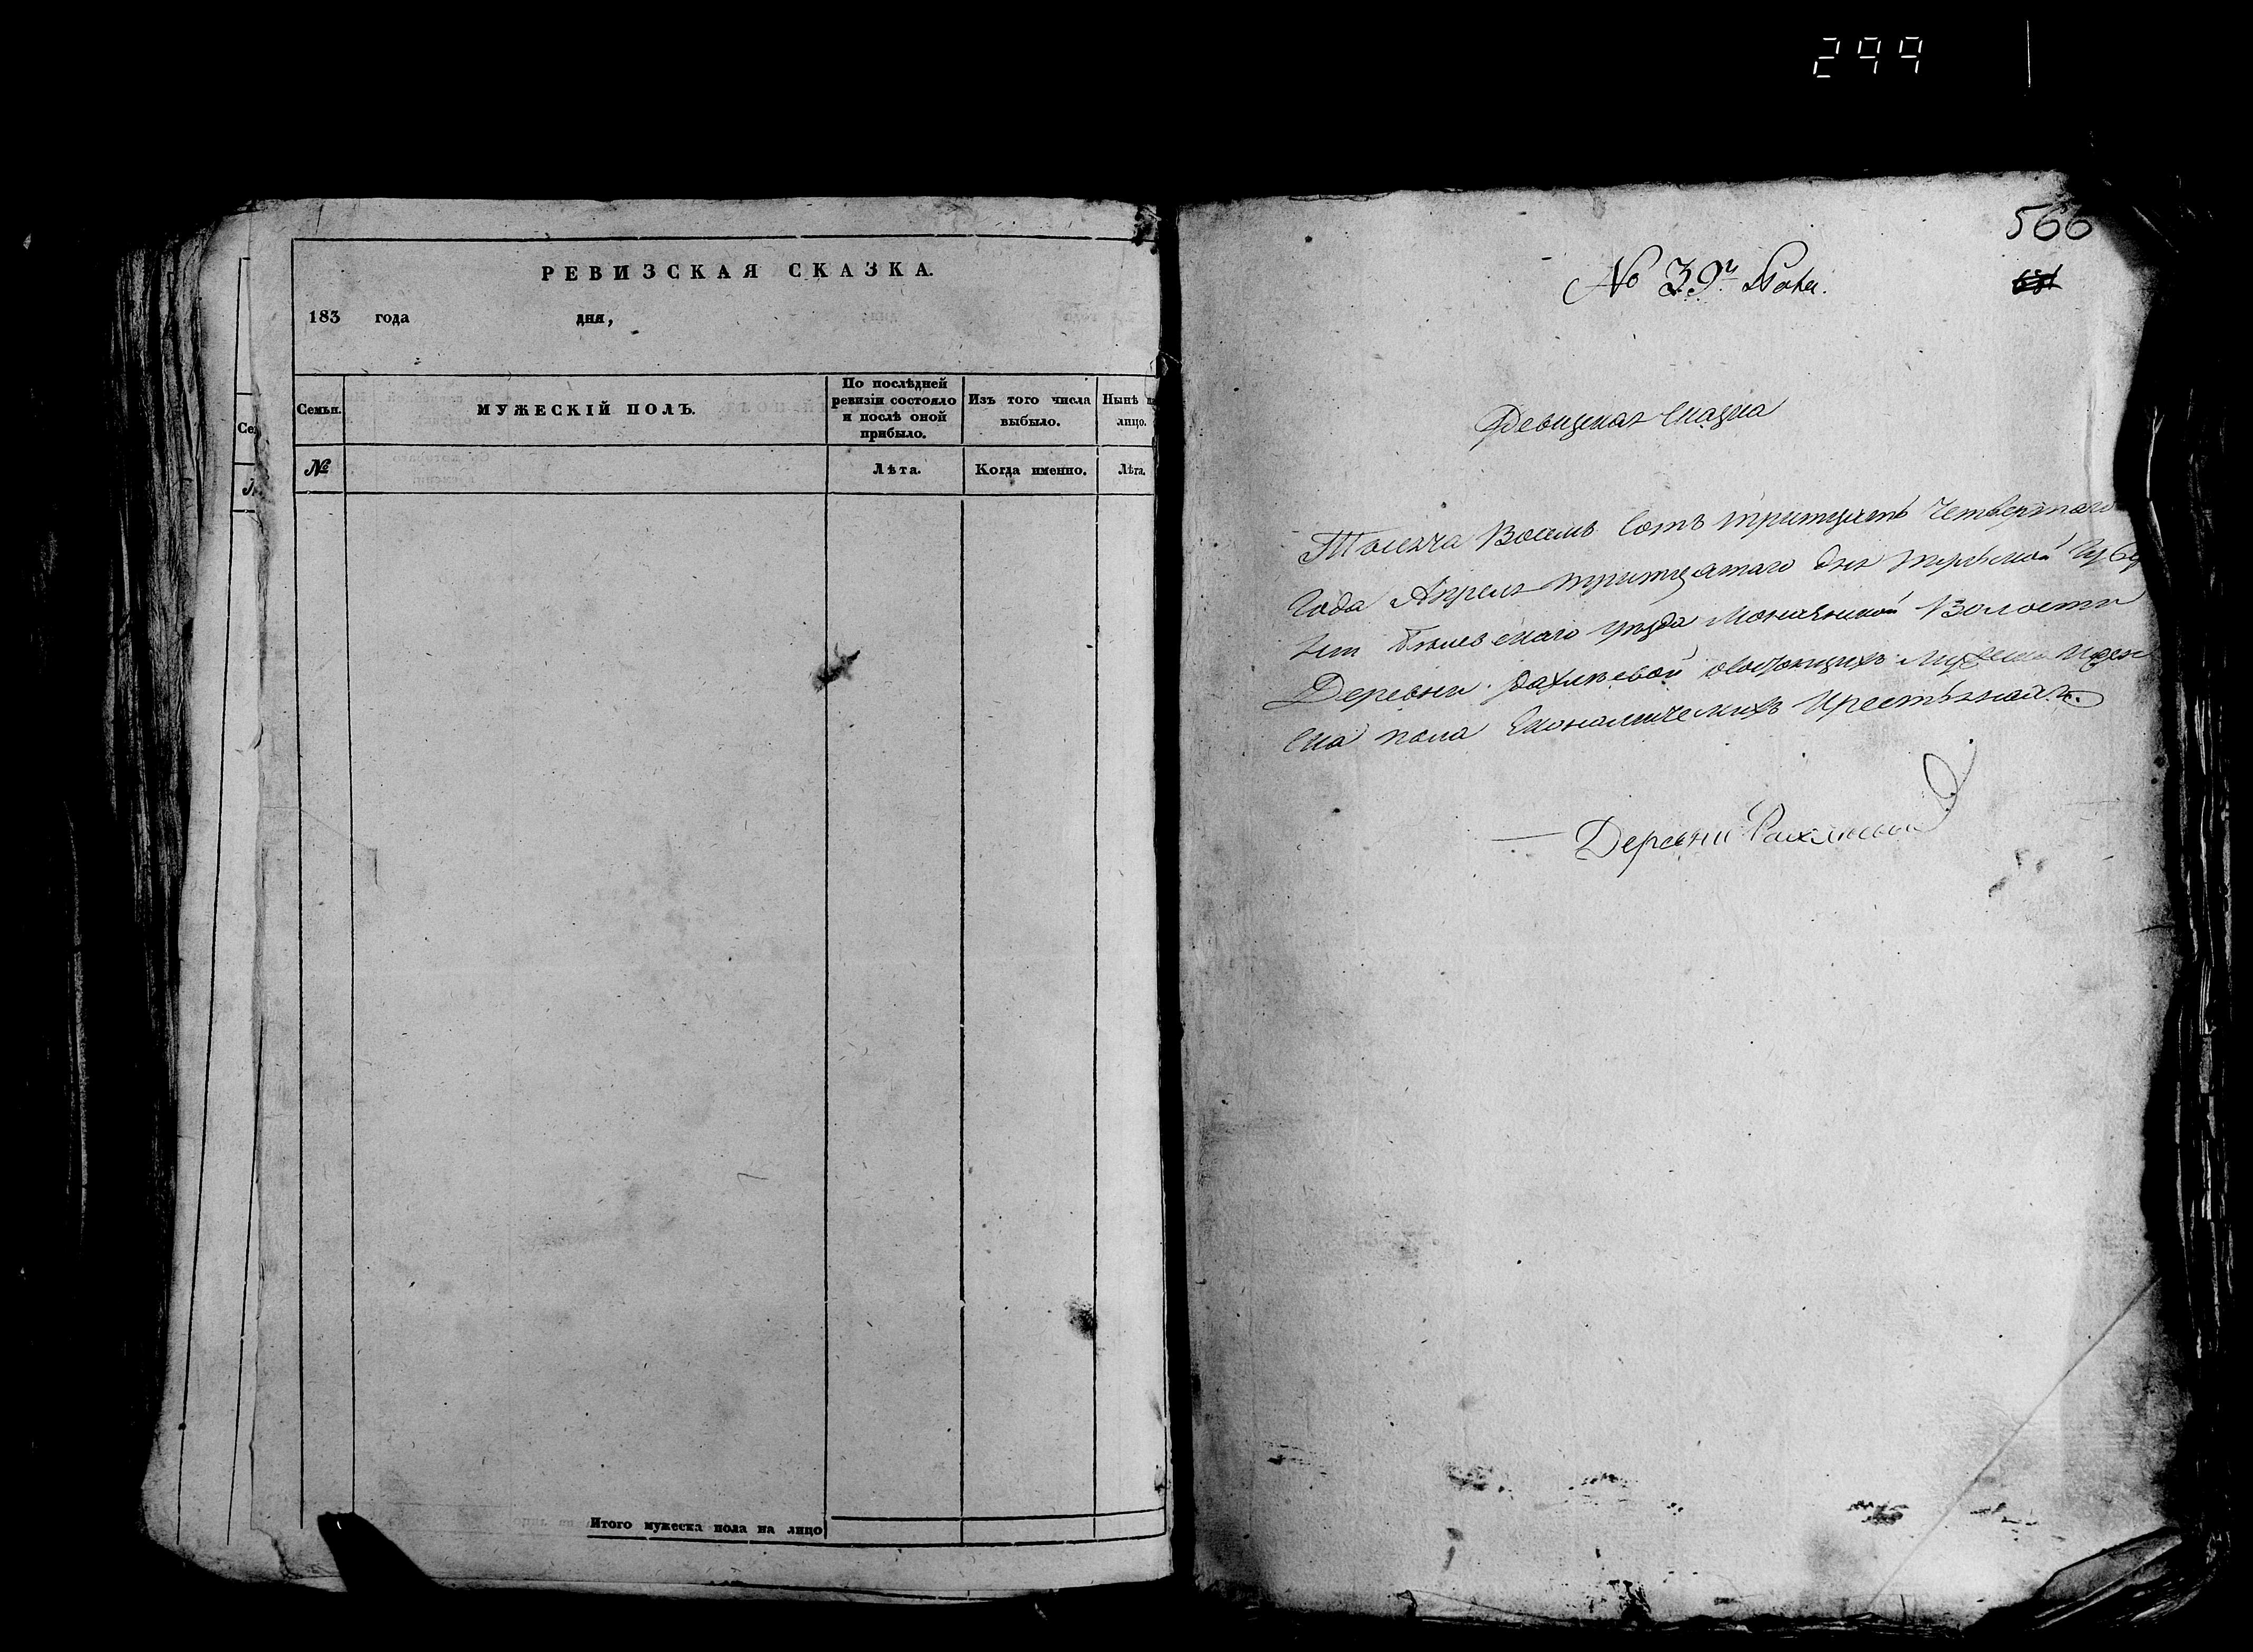 299
РЕВИЗСКАЯ СКАЗКА.
183 года дня,
Семьи.
МУЖЕСКІЙ ПОЛЪ.
По послѣдней ревизіи состояло и послѣ оной прибыло.
Изъ того числа выбыло.
Нынѣ на лицо.
№
Лѣта.
Когда именно.
Лѣта.
Итого мужеска пола на лицо
566
№ 39й
Ревизская Сказка
Тысяча Восемь Сотъ тритцать четвертаго
Года Апреля тритцатаго дня Губер
нии уѣзда Волости
Деревни Рахлѣевой мужеска и жен
ска пола Економическихъ Крестьянахъ.
Деревни